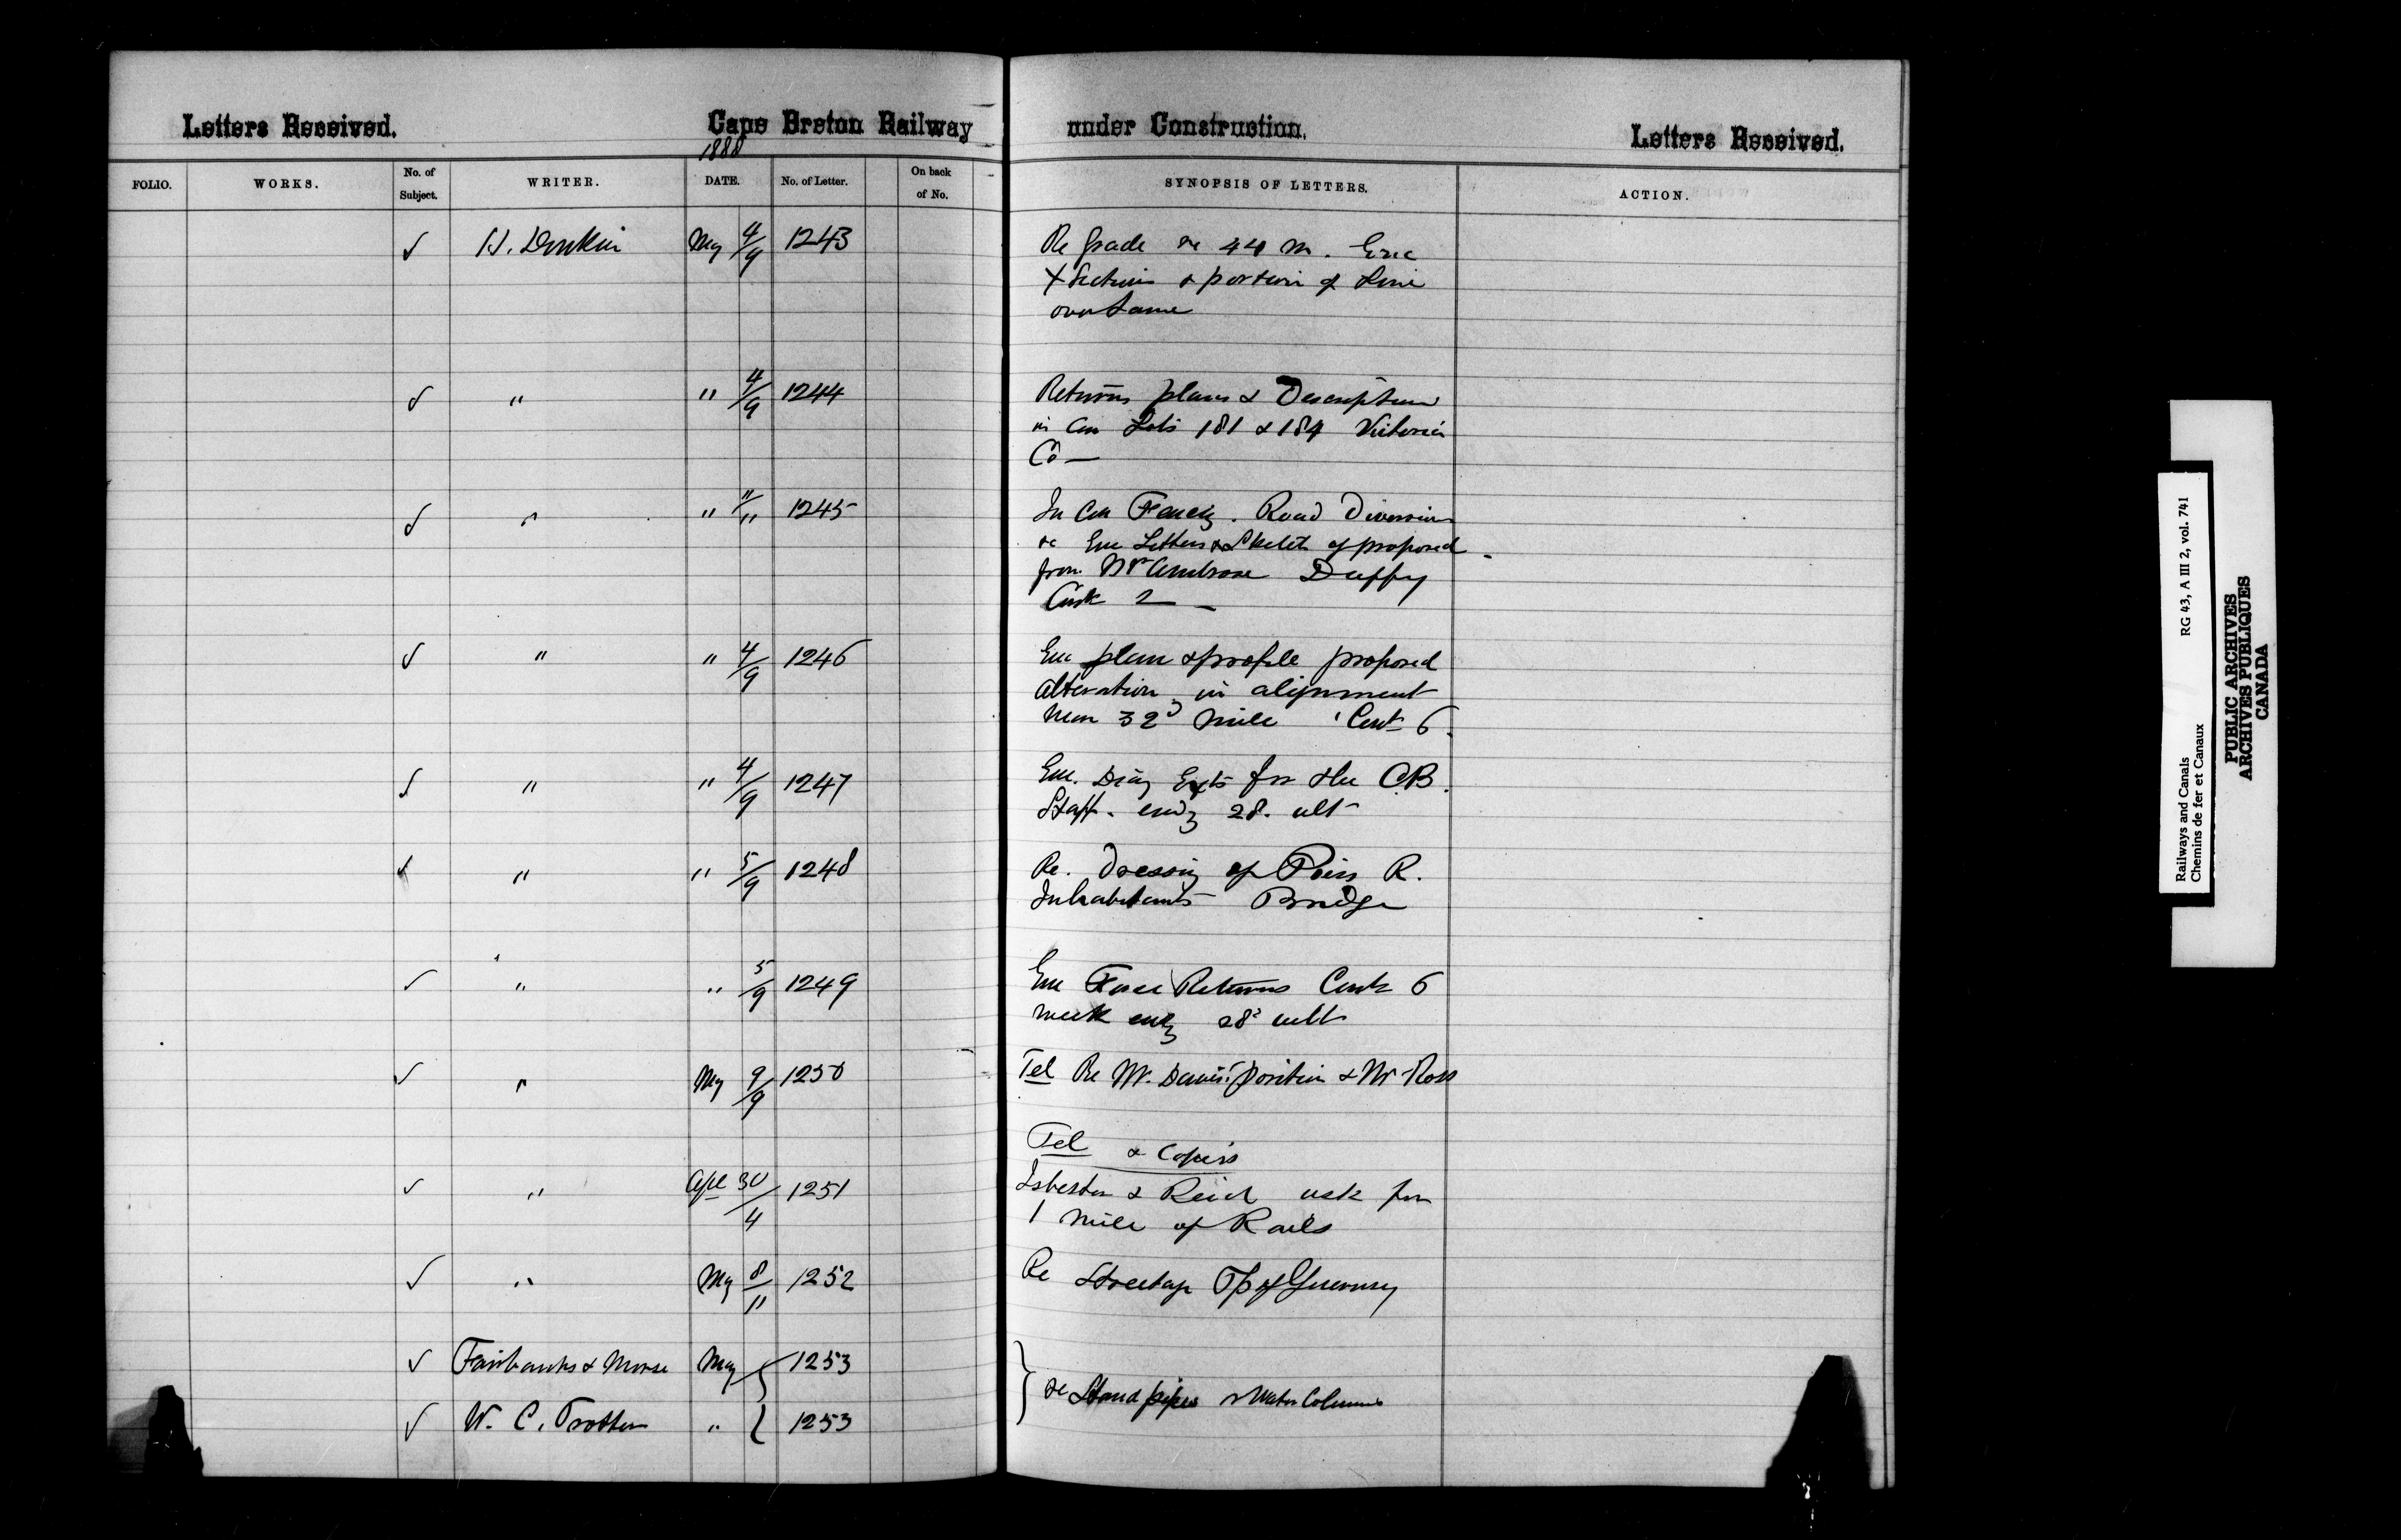 Letters Received.
Cape Breton Railway
under Construction.
Letters Received.
1888
FOLIO.
WORKS.
No. of
Subject.
WRITER.
DATE.
No. of Letter.
On back
of No.
SYNOPSIS OF LETTERS.
ACTION.
✓ H. Donkin May 4/9 1243
Re Grade re 44 M. Enc
X Sections & portion of Line
over same
✓ " " 4/9 1244
Returns plans & Description
in Con Lots 181 & 184 Victoria
Co —
✓ " " 11/11 1245
In Con Fencg. Road Diversion
re Enc Letters & Sketch of proposed
from Mr Ambrose Duffy
Cont 2 —
✓ " " 4/9 1246
Enc plan & profile proposed
alteration in alignment
near 32d mile Cont 6.
✓ " " 4/9 1247
Enc. Diary Exts for the CB.
Staff. endg 28. ult
✓ " " 5/9 1248
Re. Dressing of Piers R.
Inhabitants Bridge
✓ " " 5/9 1249
Enc Force Returns Cont 6
week endg 28 ult
✓ " May 9/9 1250
Tel Re Mr. Davis' position & Mr Ross
✓ " Apl 30/4 1251
Tel & Copies
Isbester & Reid ask for
1 mile of Rails
✓ " May 8/11 1252
Re
✓ Fairbanks & Morse May 1253
✓ W. C. Trotter " 1253
re Stand pipes & Water Columns
Railways and Canals RG 43, A III 2, vol. 741
Chemins de fer et Canaux
PUBLIC ARCHIVES
ARCHIVES PUBLIQUES
CANADA